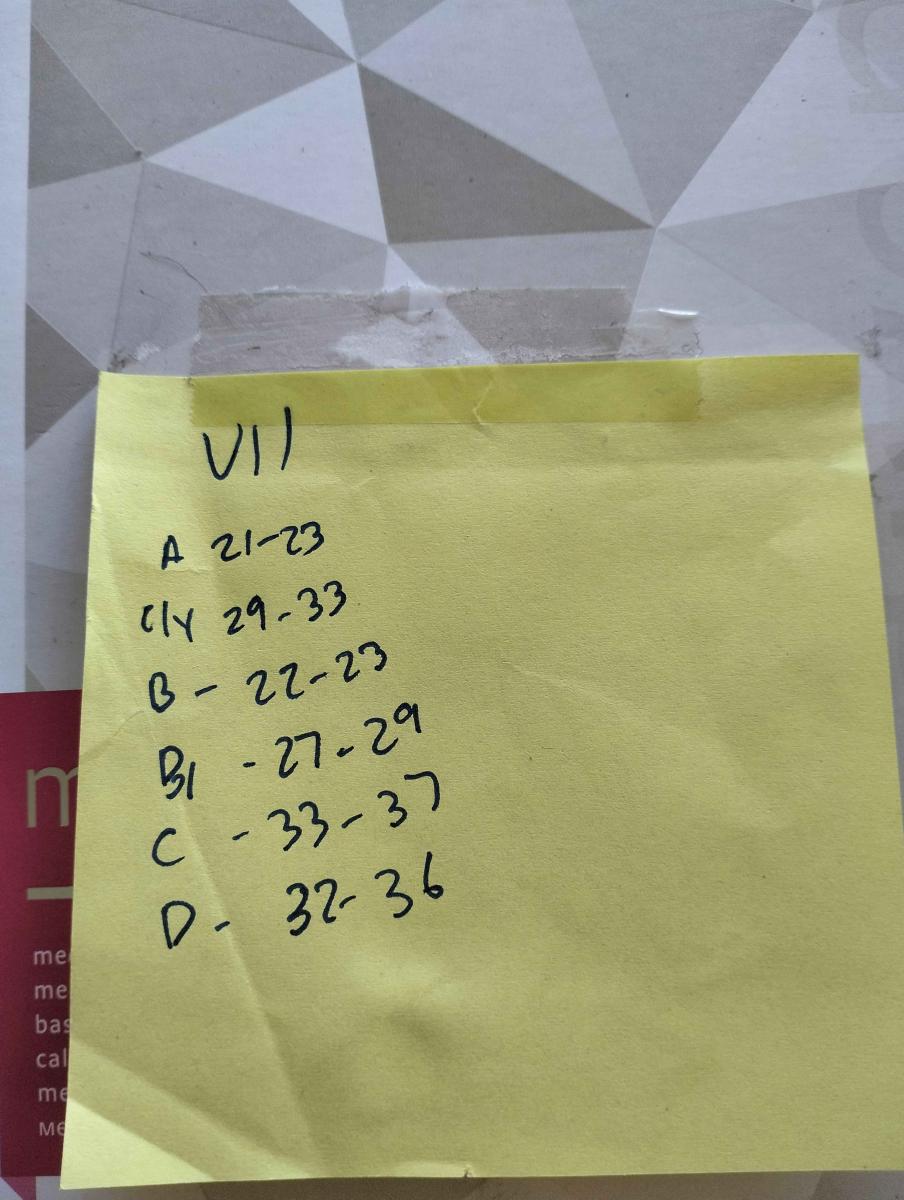 VII
A 21-23
C/Y 29-33
B - 22-23
B1 - 27-29
C - 33-37
D - 32-36
m
me
me
bas
cal
me
ме